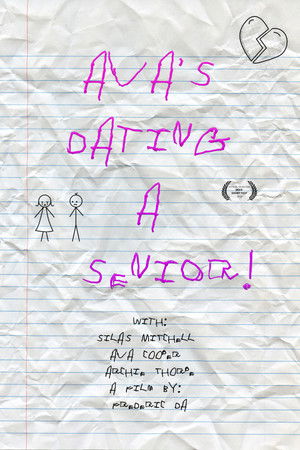 AVA'S
DATING
A
SENIOR!
WITH:
SILAS MITCHELL
AVA COOPER
ARCHIE THORPE
A FILM BY:
FREDERIC DA